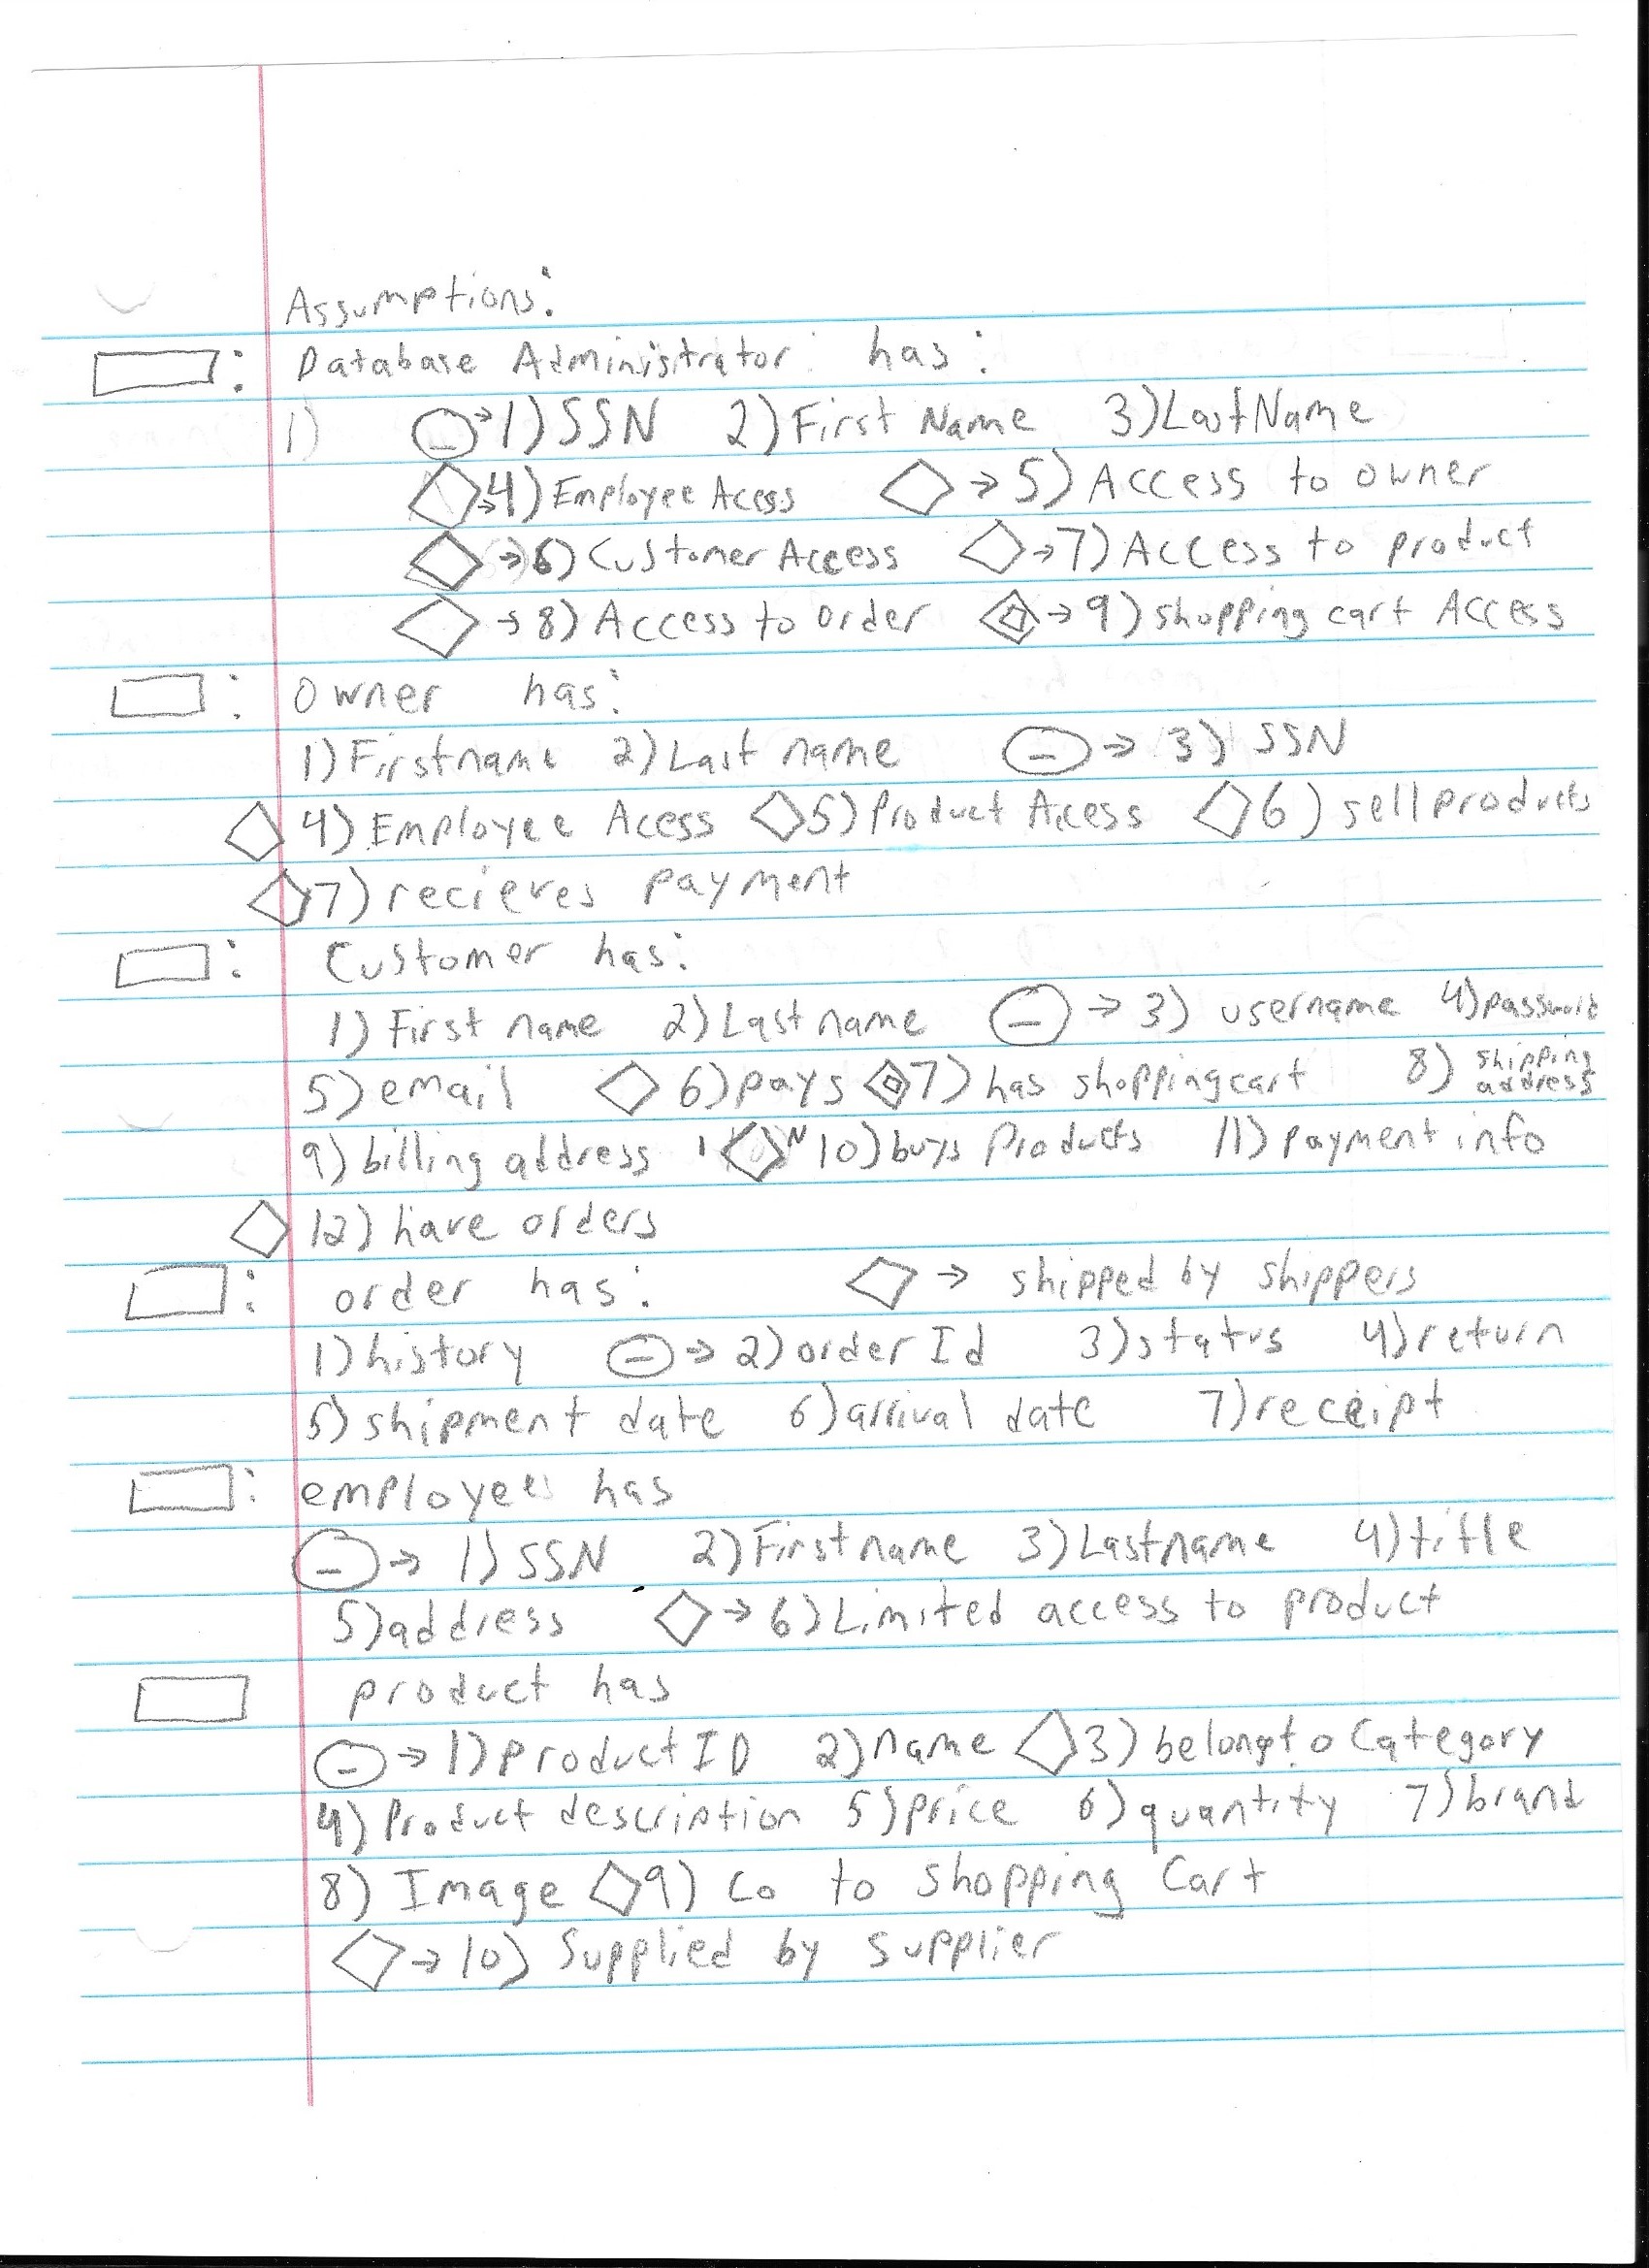 Assumptions:
Database Administrator has:
1) 1) SSN 2) First Name 3) Last Name
4) Employee Acess → 5) Access to owner
→ 6) Customer Access → 7) Access to product
→ 8) Access to order → 9) shopping cart Access
owner has:
1) First name 2) Last name → 3) SSN
4) Employee Acess 5) Product Access 6) sell products
7) recieves payment
Customer has:
1) First name 2) Last name → 3) username 4) password
5) email 6) pays 7) has shopping cart 8) shipping address
9) billing address 1 N 10) buys Products 11) payment info
12) have orders
order has: → shipped by shippers
1) history → 2) order Id 3) status 4) return
5) shipment date 6) arrival date 7) receipt
employee has
→ 1) SSN 2) First name 3) Last name 4) title
5) address → 6) Limited access to product
product has
→ 1) product ID 2) name 3) belong to Category
4) Product description 5) price 6) quantity 7) brand
8) Image 9) Go to shopping Cart
→ 10) Supplied by supplier